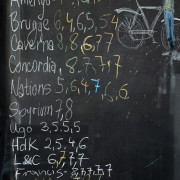 Brugge 6,4,6,5,5,4
Caverna 8,8,6,7,7
Concordia, 8,7,7,7
Nations 5,6,4,7,6,6
Spyrium 7,8
Ugo 3,5,5,5
HdK 2,5,4,6
L&C 6,7,7,7
Francis